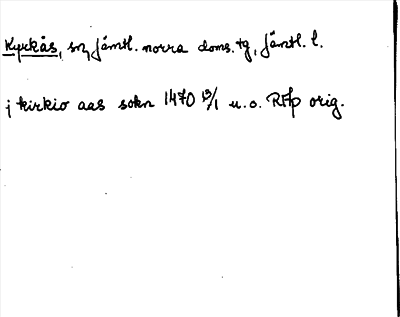 Kyrkås, sn, Jämtl. norra doms. tg, Jämtl. l.
j kirkio aas sokn 1470 13/1 u.o. RAp orig.